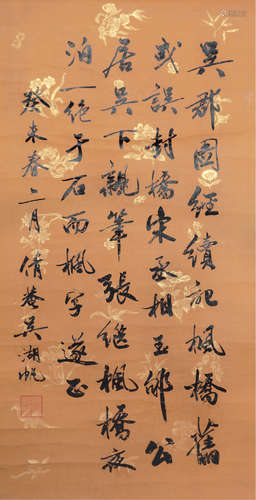 吴郡圖經續記楓橋舊
或誤封橋宋丞相王郇公
居吴下親筆張繼楓橋夜
泊一絶于石而楓字遂正
癸未春二月倩菴吴湖帆